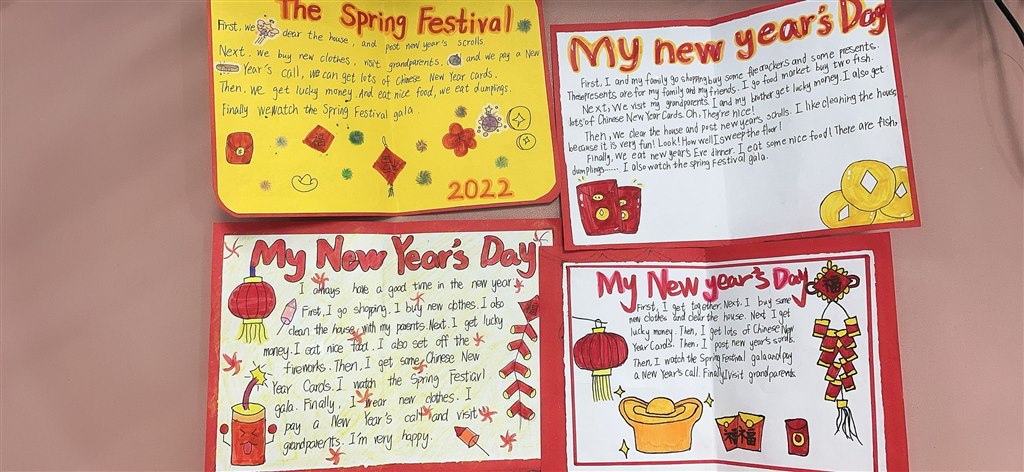 The Spring Festival
First, we clear the house, and post new year's scrolls.
Next, we buy new clothes, visit grandparents, and we pay a New
Year's call, we can get lots of Chinese New Year cards.
Then, we get lucky money. And eat nice food, we eat dumplings.
Finally we watch the Spring Festival gala.
福
2022
My new year's Day
First, I and my family go shopping buy some firecrackers and some presents.
These presents are for my family and my friends. I go food market buy two fish.
Next, We visit my grandparents. I and my brother get lucky money. I also get
lots of Chinese New Year Cards. Oh, They're nice!
Then, we clear the house and post new years scrolls. I like cleaning the house
because it is very fun! Look! How well I sweep the floor!
Finally, We eat new year's Eve dinner. I eat some nice food! There are fish,
dumplings...... I also watch the spring Festival gala.
My New Year's Day
I always have a good time in the new year.
First, I go shopping. I buy new clothes. I also
clean the house with my parents. Next. I get lucky
money. I eat nice food. I also set off the
fireworks. Then, I get some Chinese New
Year Cards. I watch the Spring Festival
gala. Finally, I wear new clothes. I
pay a New Year's call and visit
grandparents. I'm very happy.
My New year's Day
First, I get together. Next. I buy some
new clothes and clear the house. Next I get
lucky money. Then, I get lots of Chinese New
Year Cards. Then, I post new year's scrolls.
Then, I watch the Spring Festival gala and pay
a New Year's call. Finally, I visit grandparents
福
福福